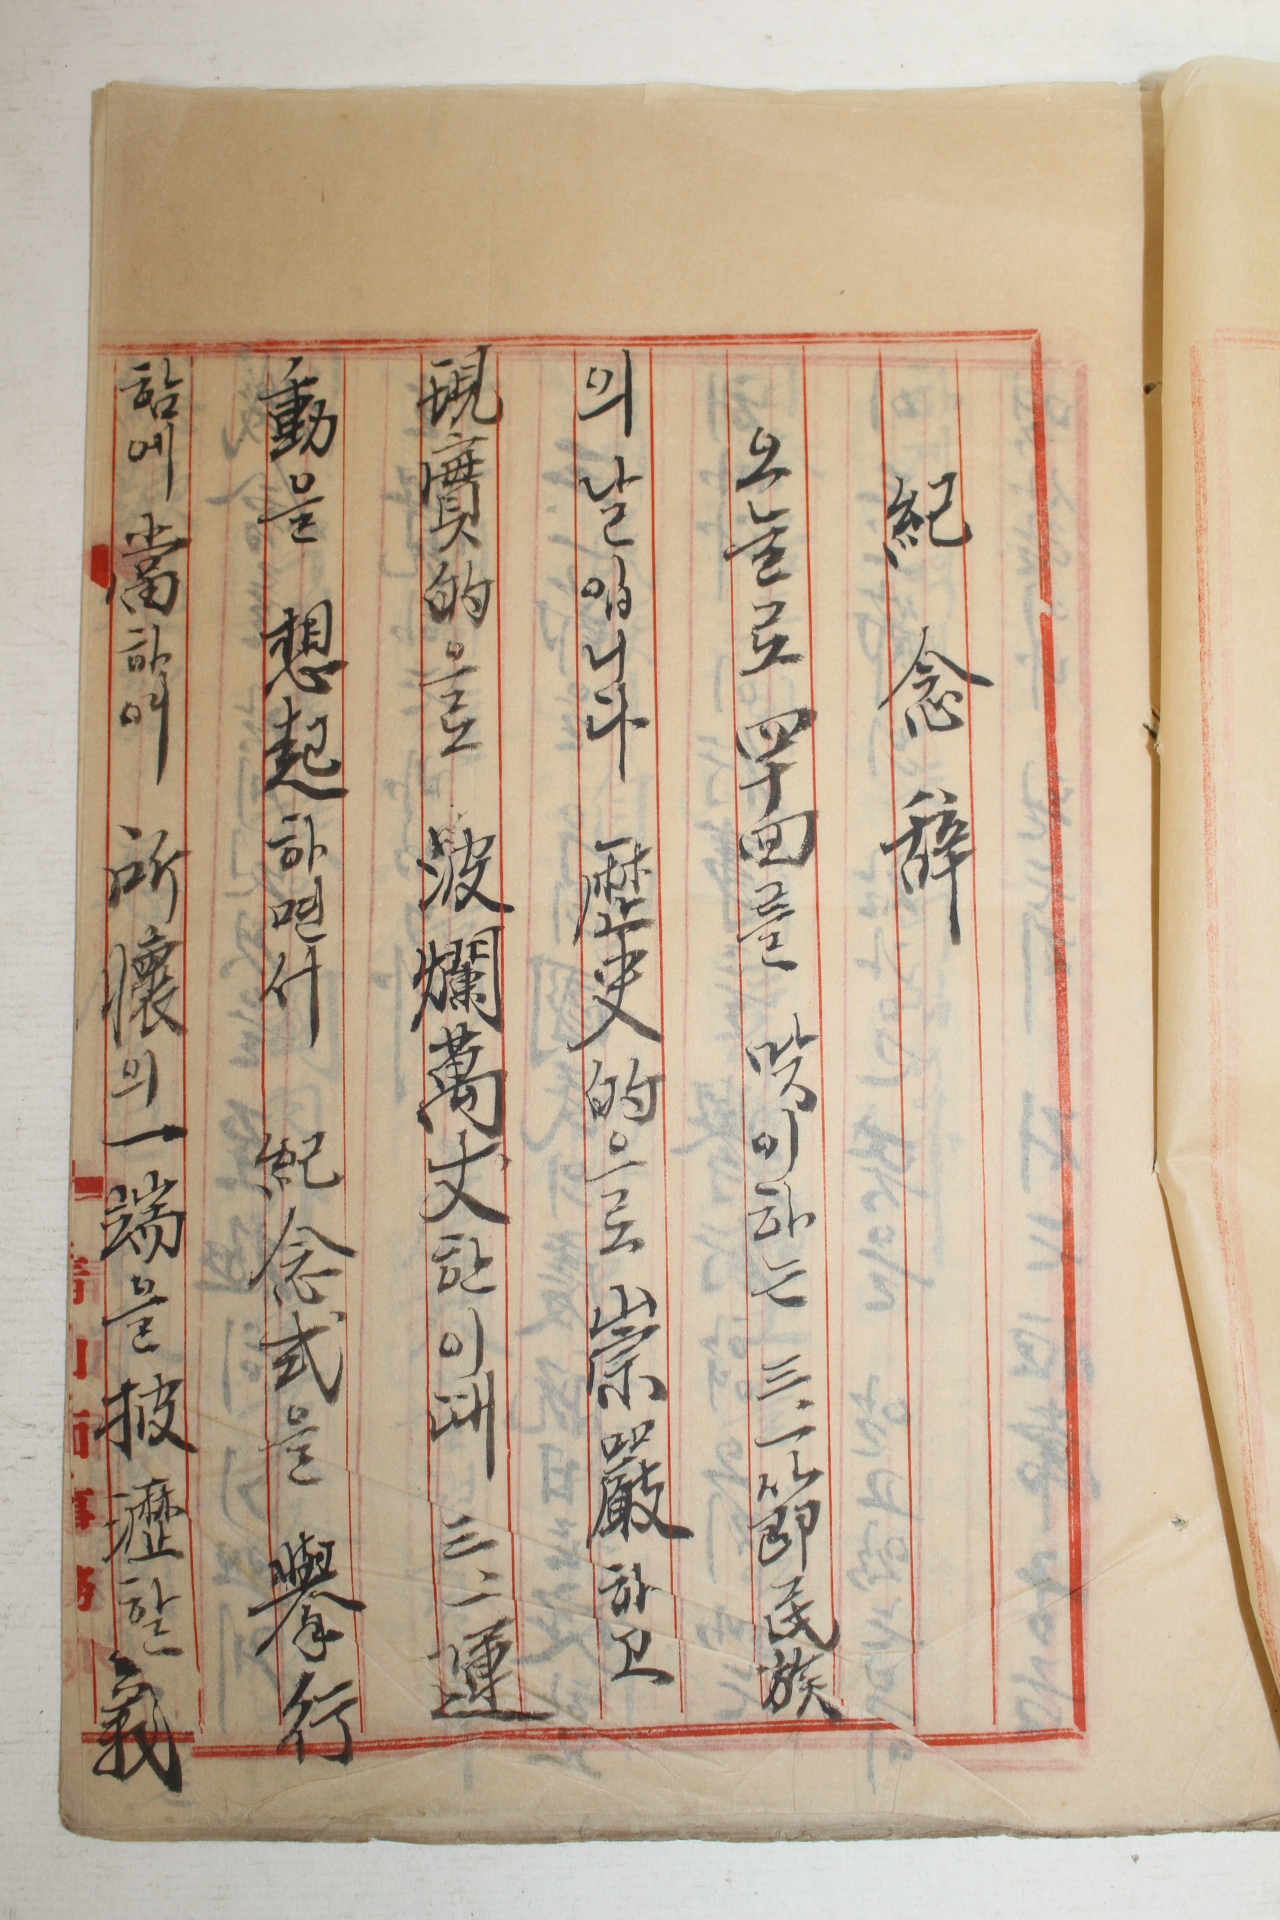 紀念辭
오늘로 四十回를 맞이하는 三一節 民族
의 날입니다 歷史的으로 崇嚴하고
現實的으로 波爛萬丈한 이때 三一運
動을 想起하면서 紀念式을 擧行
함에 當하여 所懷의 一端을 披瀝할 義